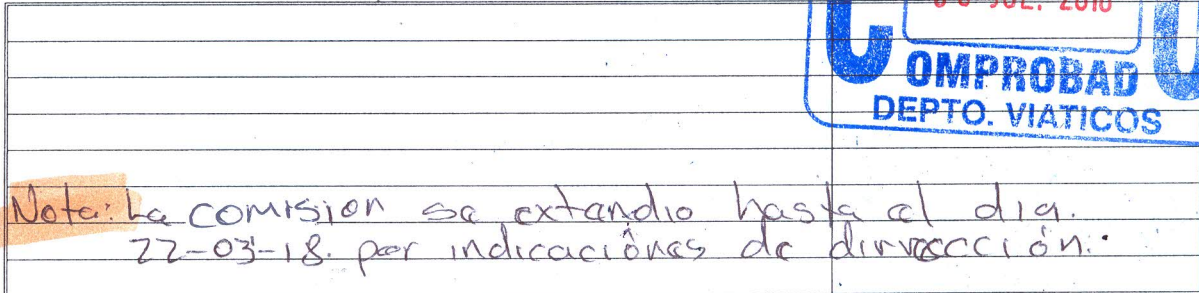 JUL. 2018
COMPROBADO
DEPTO. VIATICOS
Nota: La comision se extendio hasta el dia.
22-03-18. por indicaciónes de dirección.